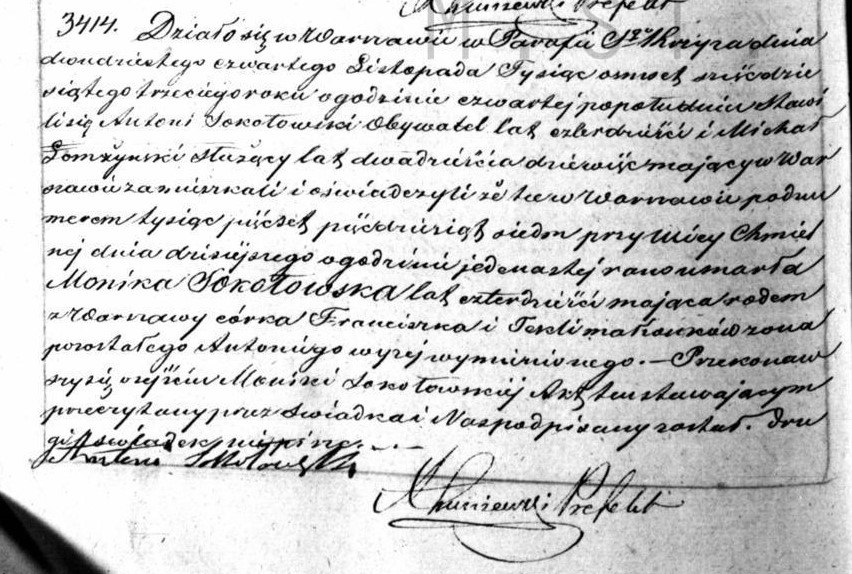 Chuniewski Prefekt
3414. Działo się w Warszawie w Parafii Sgo Krzyża dnia
dwudziestego czwartego Listopada Tysiąc ośmset sześćdzie
siątego trzeciego roku o godzinie czwartej popołudniu Stawi
li się Antoni Sokołowski Obywatel lat czterdzieści i Michał
Łomżynski służący lat dwadzieścia dziewięć mający w War
szawie zamieszkali i oświadczyli że tu w Warszawie pod nu
merem tysiąc pięćset pięćdziesiąt siedm przy ulicy Chmiel
nej dnia dzisiejszego o godzinie jedenastej rano umarła
Monika Sokołowska lat czterdzieści mająca rodem
z Warszawy córka Franciszka i Tekli małżonków żona
pozostałego Antoniego wyżej wymienionego. — Przekonaw
szy się o zejściu Moniki Sokołowskiej Akt ten stawającym
przeczytany przez świadka i Nas podpisany został. Dru
gi świadek niepisze.
Antoni Sokołowski
Chuniewski Prefekt